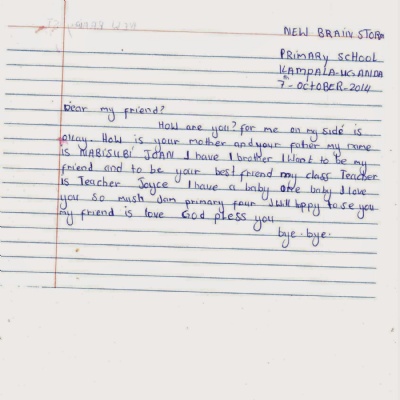 NEW BRAIN STORM
PRIMARY SCHOOL
KAMPALA-UGANDA
7th-OCTOBER-2014
Dear my friend?
How are you? for me on my side is
okay. How is your mother and your father my name
is NABISUBI JOAN I have 1 brother I want to be my
friend and to be your best friend my class Teacher
is Teacher Joyce I have a baby one baby I love
you so mush Iam primary four I will hppy to se you
my friend is love God pless you
bye. bye.